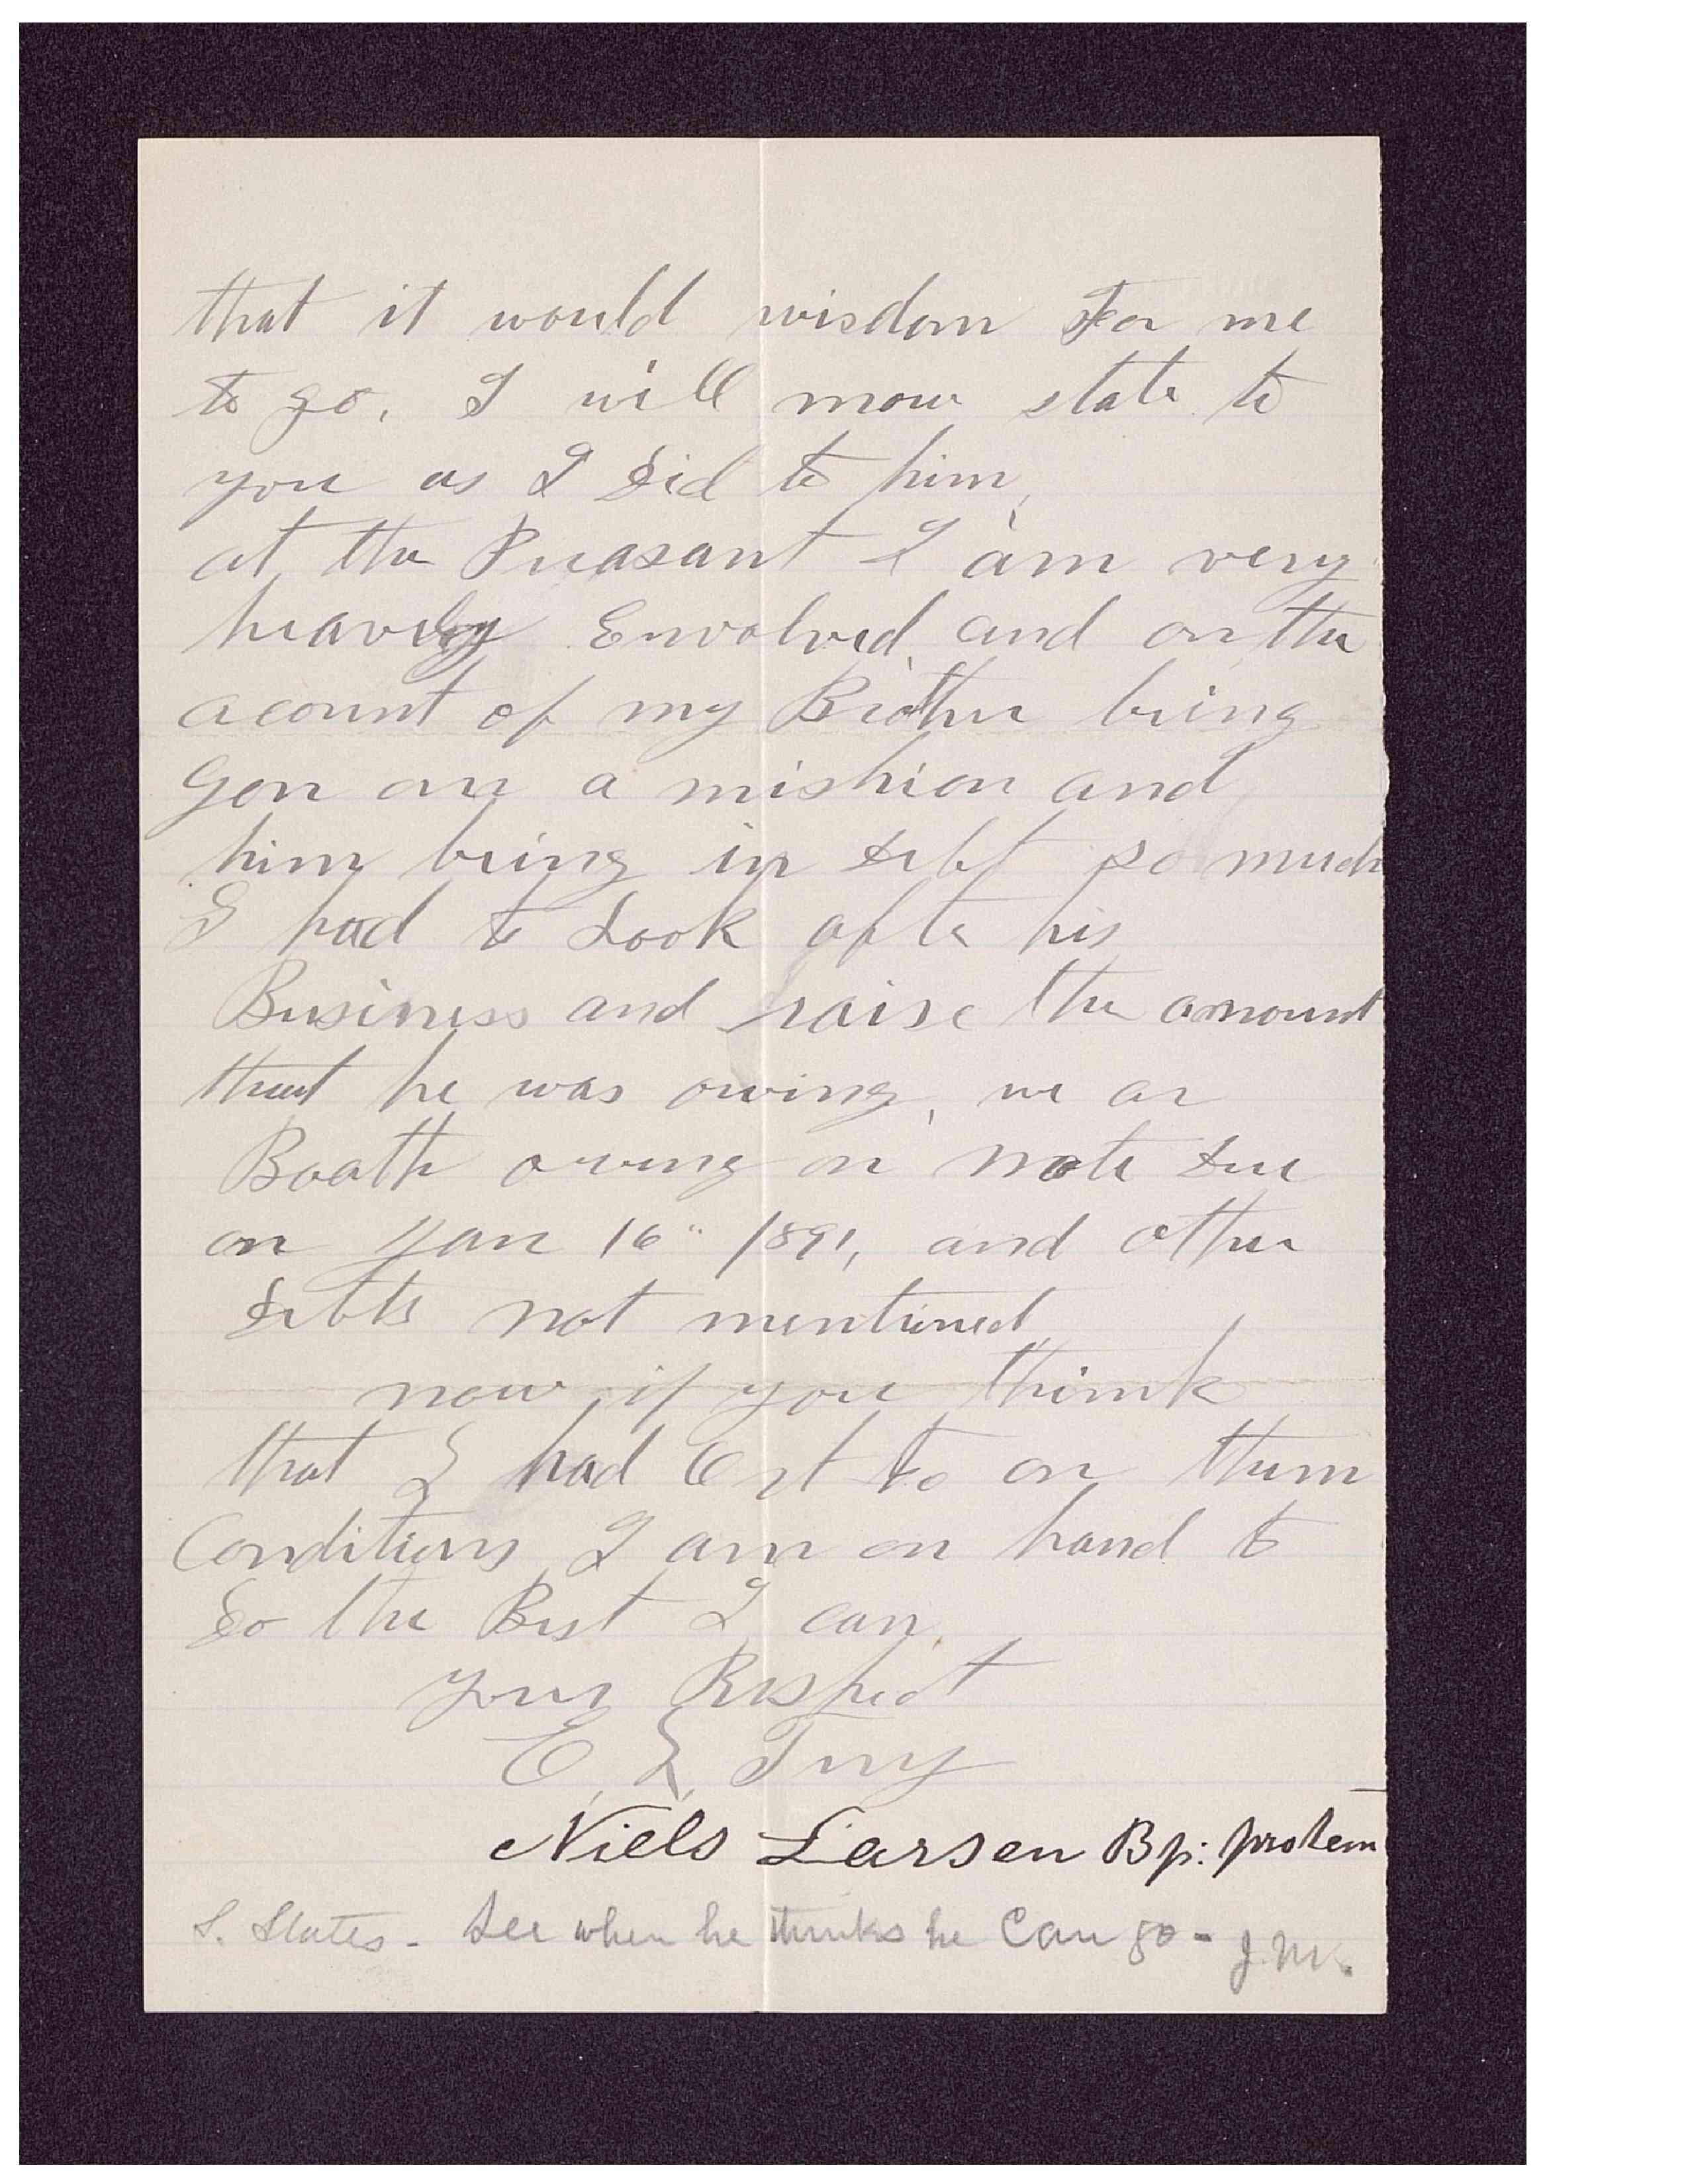 that it would wisdom For me
to go. I will now state to
you as I did to him,
at the Preasant I am very
heavely Envolved, and on the
acount of my Brother being
gon on a mishion and
him being in debt so much
I had to Look after his
Business and raise the amount
that he was owing, we ar
Boath owing on note due
on Jan 16" 1891, and other
debts not mentioned
now if you think
that I had to on them
Conditions I am on hand to
do the Best I can,
your Respect
E
Niels Larsen Bp: protem
S. States - See when he thinks he can go - J. M.